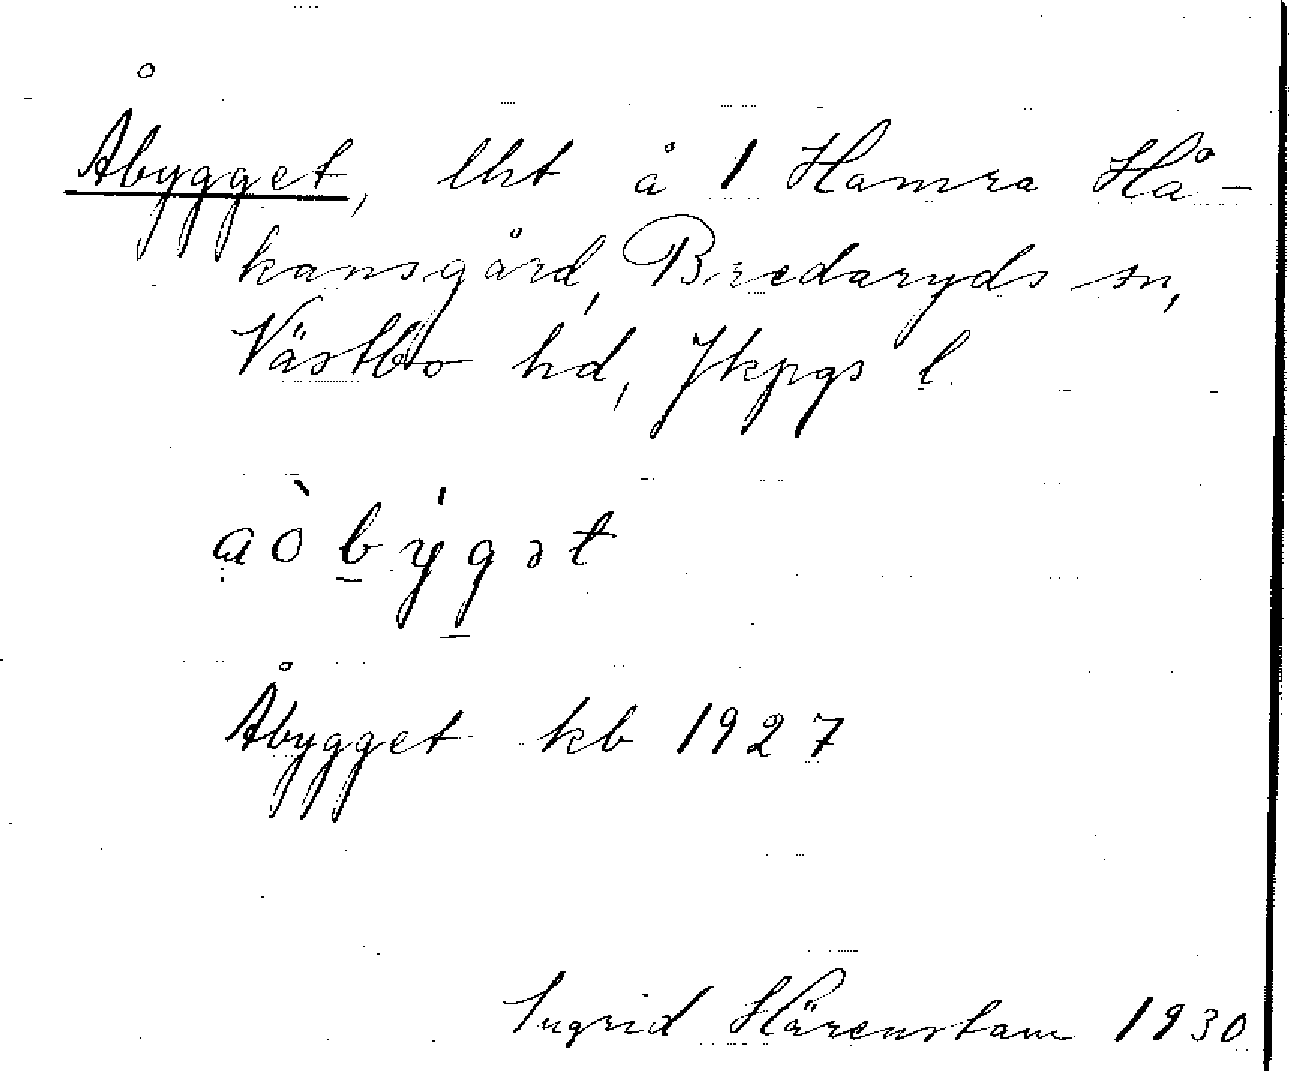 Åbygget, lht å 1 Hamra Hå-
kansgård, Bredaryds sn,
Västbo hd, Jkpgs l.
aòbýgət
Åbygget kb 1927
Ingrid Härenstam 1930